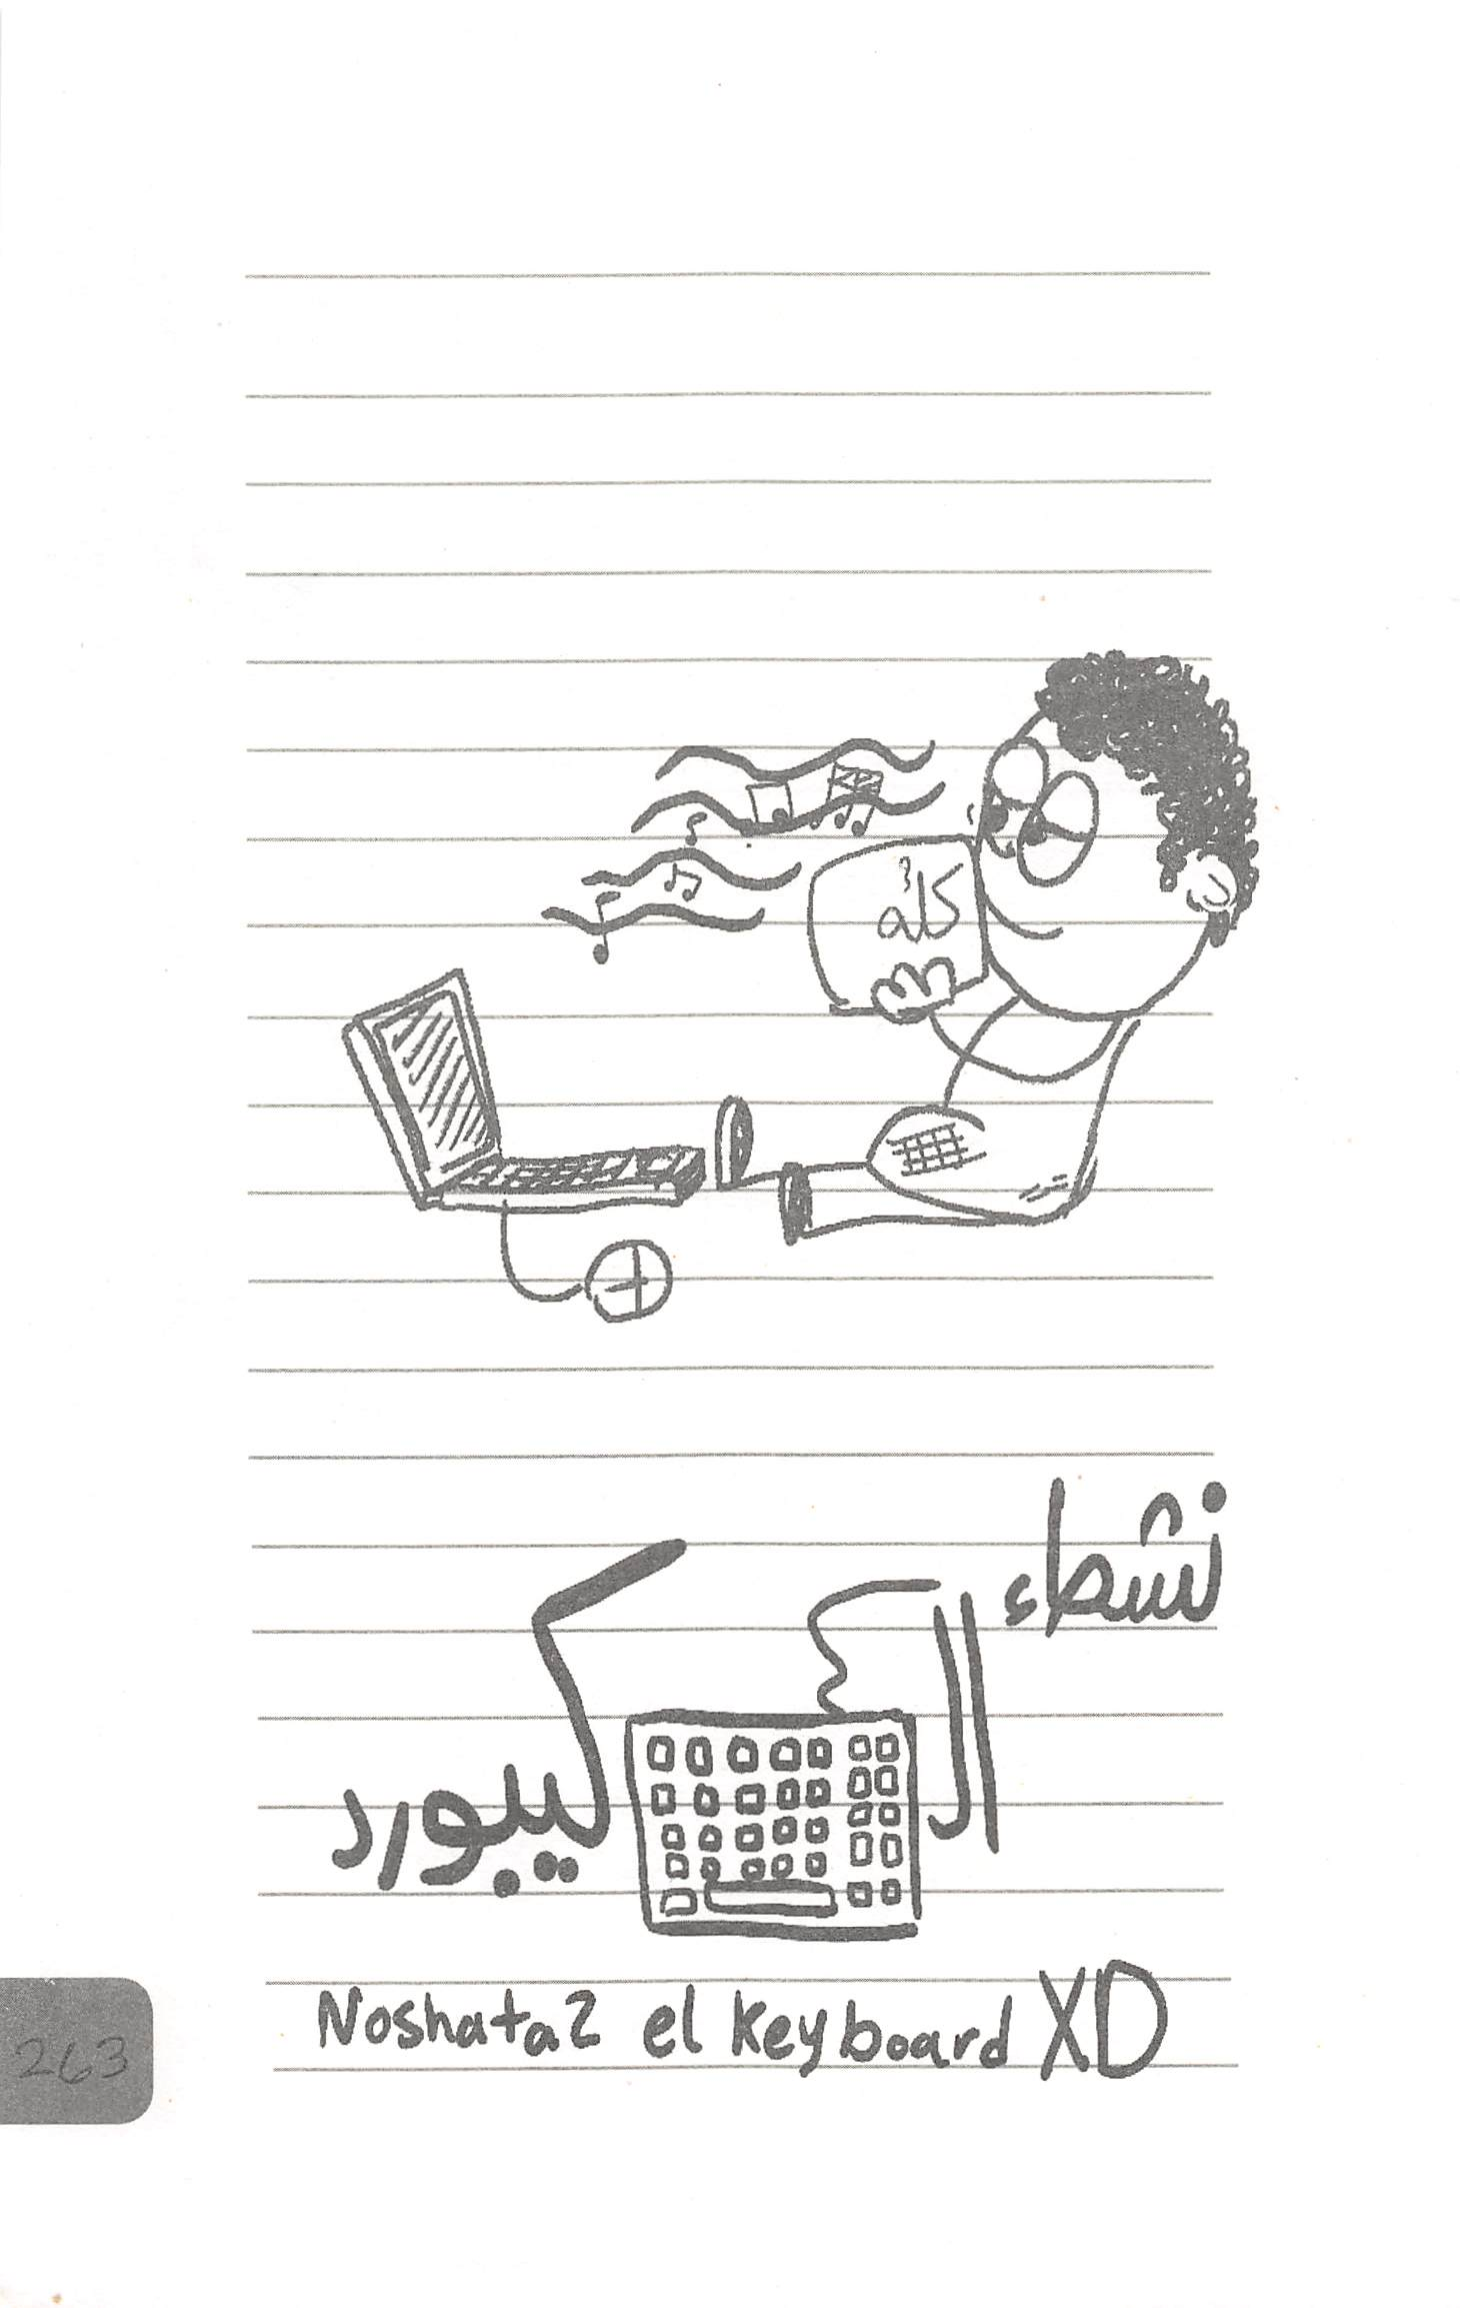 نشطاء
ال كيبورد
Noshata2 el keyboard XD
263